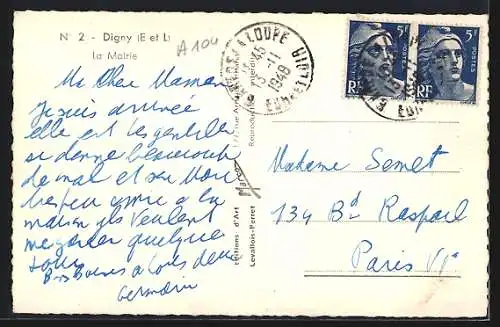 N° 2 - Digny (E et L)
La Mairie
A104
LA LOUPE
15-11
1949
EURE-ET-LOIR
5F
POSTES
RF
5F
POSTES
RF
Ma Chère Maman
Je suis arrivée
elle est très gentille
se donne beaucoup
de mal et son Mari
à la
maison ils veulent
me garder quelque
jours
Bons Baisers à tous deux
Germaine
Editions d'Art
Levallois-Perret
Madame Semet
134 Bd Raspail
Paris VI°